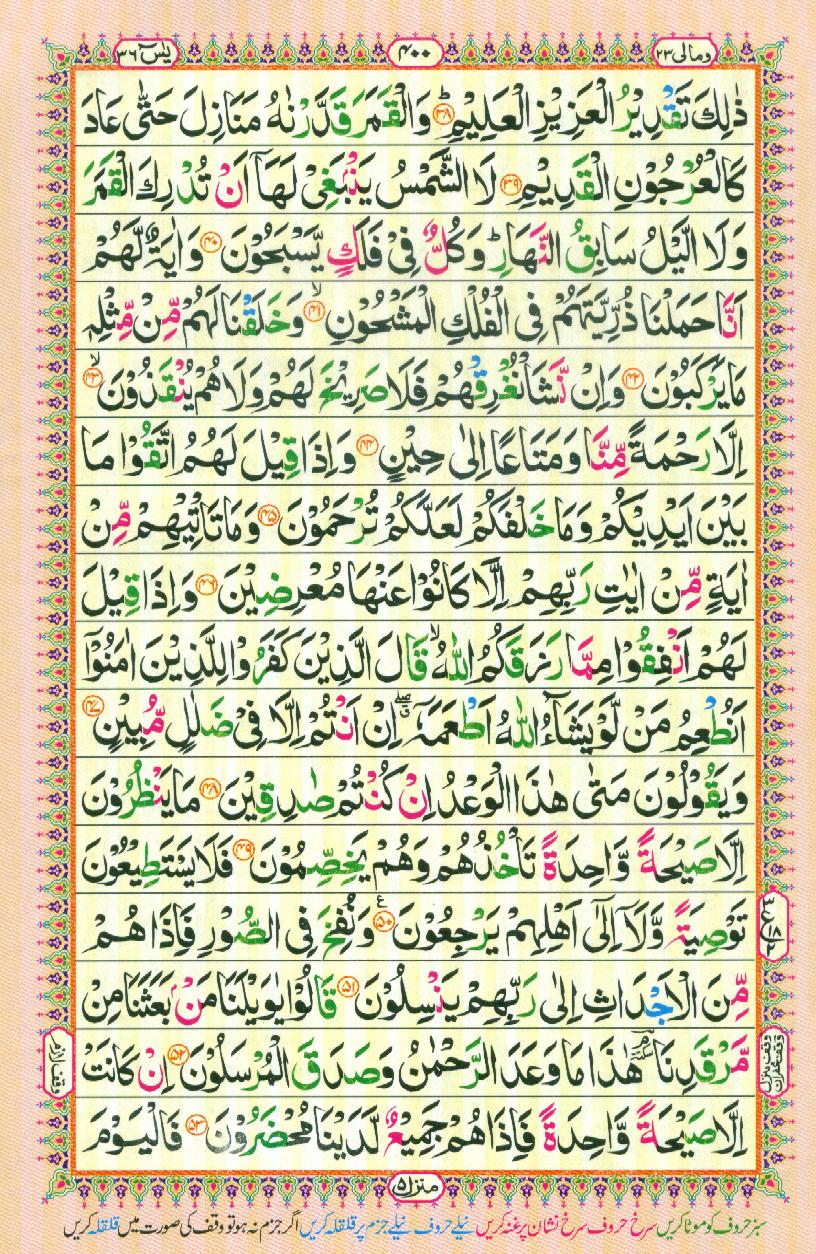 ومالی ۲۳
۴۰۰
یٰسٓ ۳۶
ذٰلِكَ تَقْدِيْرُ الْعَزِيْزِ الْعَلِيْمِ ؕ﴿۳۸﴾ وَالْقَمَرَ قَدَّرْنٰهُ مَنَازِلَ حَتّٰى عَادَ
كَالْعُرْجُوْنِ الْقَدِيْمِ ﴿۳۹﴾ لَا الشَّمْسُ يَنْۢبَغِىْ لَهَاۤ اَنْ تُدْرِكَ الْقَمَرَ
وَلَا الَّيْلُ سَابِقُ النَّهَارِؕ وَكُلٌّ فِىْ فَلَكٍ يَّسْبَحُوْنَ ﴿۴۰﴾ وَاٰيَةٌ لَّهُمْ
اَنَّا حَمَلْنَا ذُرِّيَّتَهُمْ فِى الْفُلْكِ الْمَشْحُوْنِۙ ﴿۴۱﴾ وَخَلَقْنَا لَهُمْ مِّنْ مِّثْلِهٖ
مَا يَرْكَبُوْنَ ﴿۴۲﴾ وَاِنْ نَّشَاْ نُغْرِقْهُمْ فَلَا صَرِيْخَ لَهُمْ وَلَا هُمْ يُنْقَذُوْنَۙ ﴿۴۳﴾
اِلَّا رَحْمَةً مِّنَّا وَمَتَاعًا اِلٰى حِيْنٍ ﴿۴۴﴾ وَاِذَا قِيْلَ لَهُمُ اتَّقُوْا مَا
بَيْنَ اَيْدِيْكُمْ وَمَا خَلْفَكُمْ لَعَلَّكُمْ تُرْحَمُوْنَ ﴿۴۵﴾ وَمَا تَاْتِيْهِمْ مِّنْ
اٰيَةٍ مِّنْ اٰيٰتِ رَبِّهِمْ اِلَّا كَانُوْا عَنْهَا مُعْرِضِيْنَ ﴿۴۶﴾ وَاِذَا قِيْلَ
لَهُمْ اَنْفِقُوْا مِمَّا رَزَقَكُمُ اللّٰهُۙ قَالَ الَّذِيْنَ كَفَرُوْا لِلَّذِيْنَ اٰمَنُوْۤا
اَنُطْعِمُ مَنْ لَّوْ يَشَآءُ اللّٰهُ اَطْعَمَهٗۤ ۖ اِنْ اَنْتُمْ اِلَّا فِىْ ضَلٰلٍ مُّبِيْنٍ ﴿۴۷﴾
وَيَقُوْلُوْنَ مَتٰى هٰذَا الْوَعْدُ اِنْ كُنْتُمْ صٰدِقِيْنَ ﴿۴۸﴾ مَا يَنْظُرُوْنَ
اِلَّا صَيْحَةً وَّاحِدَةً تَاْخُذُهُمْ وَهُمْ يَخِصِّمُوْنَ ﴿۴۹﴾ فَلَا يَسْتَطِيْعُوْنَ
تَوْصِيَةً وَّلَاۤ اِلٰٓى اَهْلِهِمْ يَرْجِعُوْنَ ﴿۵۰﴾ ع وَنُفِخَ فِى الصُّوْرِ فَاِذَا هُمْ
مِّنَ الْاَجْدَاثِ اِلٰى رَبِّهِمْ يَنْسِلُوْنَ ﴿۵۱﴾ قَالُوْا يٰوَيْلَنَا مَنْۢ بَعَثَنَا مِنْ
مَّرْقَدِنَا ٚۘ هٰذَا مَا وَعَدَ الرَّحْمٰنُ وَصَدَقَ الْمُرْسَلُوْنَ ﴿۵۲﴾ اِنْ كَانَتْ
اِلَّا صَيْحَةً وَّاحِدَةً فَاِذَا هُمْ جَمِيْعٌ لَّدَيْنَا مُحْضَرُوْنَ ﴿۵۳﴾ فَالْيَوْمَ
وقف لازم
منزل ۵
سبز حروف کو موٹا کریں سرخ حروف سرخ نشان پر غنہ کریں نیلے حروف نیلے جزم پر قلقلہ کریں اگر جزم نہ ہو تو وقف کی صورت میں قلقلہ کریں